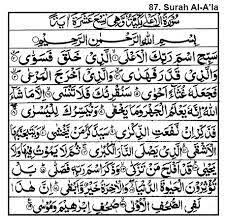 87. Surah Al-A'la
سُوْرَةُ الْاَعْلٰى مَكِّيَّةٌ وَّهِيَ تِسْعَ عَشْرَةَ اٰيَةً
بِسْمِ اللهِ الرَّحْمٰنِ الرَّحِيْمِ
سَبِّحِ اسْمَ رَبِّكَ الْاَعْلَى ۙ الَّذِيْ خَلَقَ فَسَوّٰى ۙ
وَالَّذِيْ قَدَّرَ فَهَدٰى ۙ وَالَّذِيْٓ اَخْرَجَ الْمَرْعٰى ۙ
فَجَعَلَهٗ غُثَآءً اَحْوٰى ؕ سَنُقْرِئُكَ فَلَا تَنْسٰٓى ۙ اِلَّا مَا شَآءَ
اللهُ ؕ اِنَّهٗ يَعْلَمُ الْجَهْرَ وَمَا يَخْفٰى ؕ وَنُيَسِّرُكَ لِلْيُسْرٰى ۚ
فَذَكِّرْ اِنْ نَّفَعَتِ الذِّكْرٰى ؕ سَيَذَّكَّرُ مَنْ يَّخْشٰى ۙ وَيَتَجَنَّبُهَا
الْاَشْقَى ۙ الَّذِيْ يَصْلَى النَّارَ الْكُبْرٰى ۚ ثُمَّ لَا يَمُوْتُ فِيْهَا وَلَا
يَحْيٰى ؕ قَدْ اَفْلَحَ مَنْ تَزَكّٰى ۙ وَذَكَرَ اسْمَ رَبِّهٖ فَصَلّٰى ؕ بَلْ
تُؤْثِرُوْنَ الْحَيٰوةَ الدُّنْيَا ۖ وَالْاٰخِرَةُ خَيْرٌ وَّاَبْقٰى ؕ اِنَّ هٰذَا
لَفِي الصُّحُفِ الْاُوْلٰى ۙ صُحُفِ اِبْرٰهِيْمَ وَمُوْسٰى